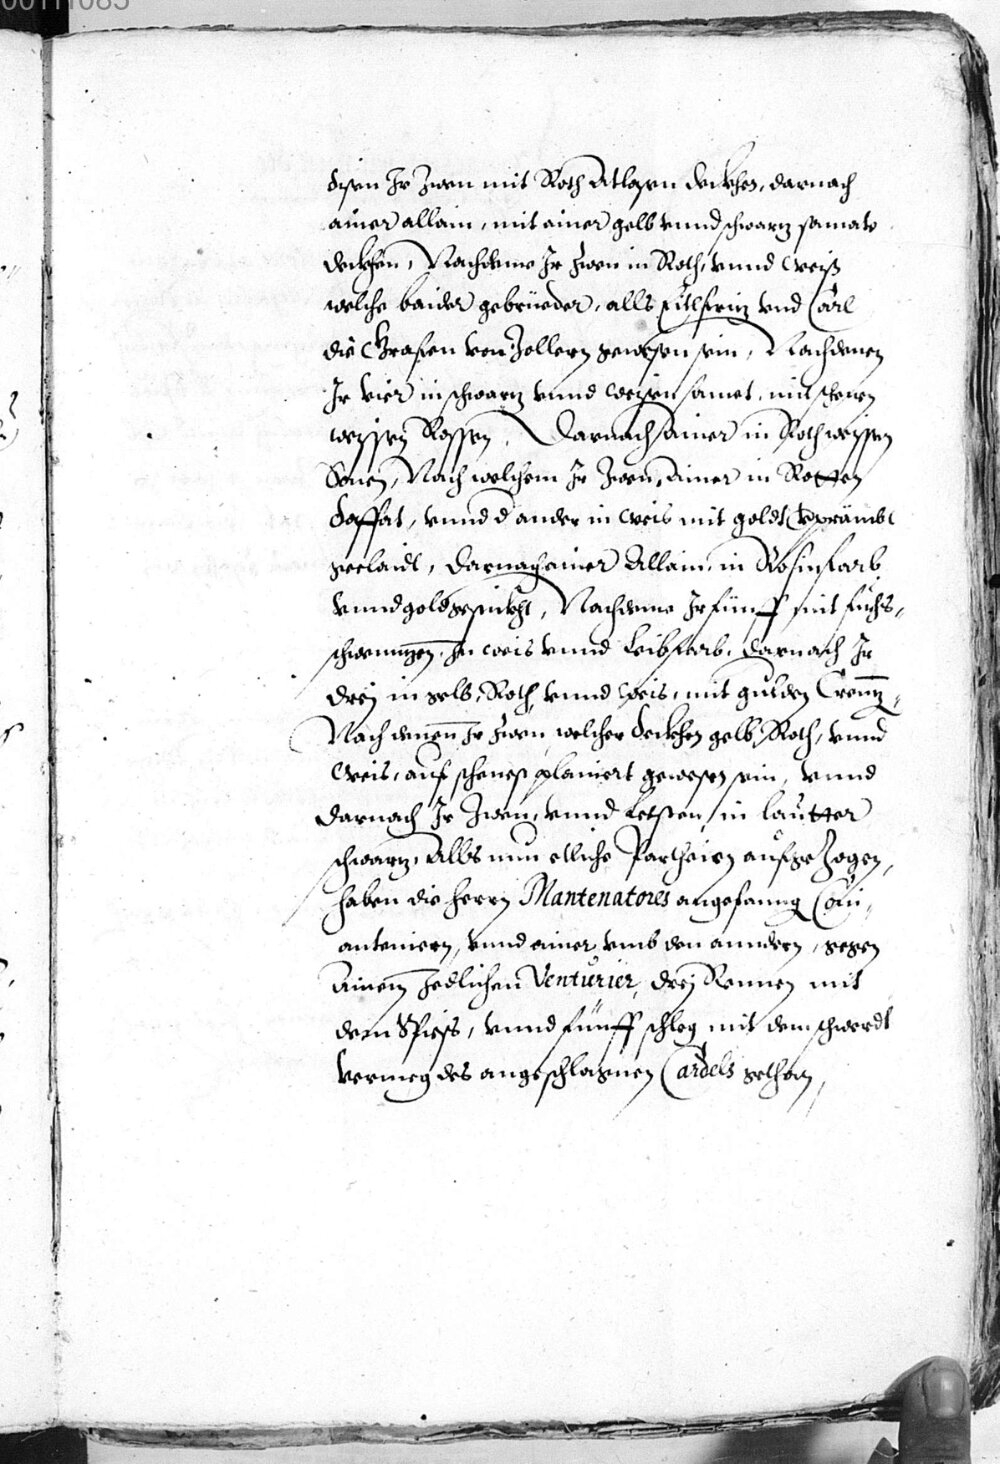 00111085
disen Ir zwen mit Roth Atlasen deckhen, darnach
ainer allain, mit ainer gelb vnnd schwartz samate
deckhen, Nachdeme Ir zwen in Roth, vnnd Weiß
welche baider gebrüeder, alls Eitlfritz vnd Carl
die Graffen von Zollern gewesen sein, Nachdenen
Ir vier in schwartz vnnd weissen samet, mit schenen
weissen Rossen, Darnach ainer in Roth weissen
Nach welchem Ir zwen, ainer in Rotten
Daffat, vnnd d ander in weis mit goldt verprämbt
geclaidt, Darnach ainer Allain, in Rosinfarb
vnnd gold gestickht, Nachdeme Ir fünff mit fuchs-
schwenntzen, in weis vnnd Leibfarb, Darnach Ir
drej in gelb, Roth, vnnd Weis, mit gulden
Nach denen Ir zwen, welcher deckhen gelb, Roth, vnnd
Weis, auf schenest planiert gewesen sein, vnnd
darnach Ir zwen, vnnd Letsten, in lautter
schwartz, Alls nun etliche Partheien aufgezogen,
haben die herrn Mantenatores angefanng Com-
antenieren, vnnd ainer vmb den anndern, gegen
Ainem Jedlichen Venturier, drej Rennen mit
dem Spiess, vnnd fünff schleg mit dem schwerdt
vermeg des angeschlagnen Cardels gethan,